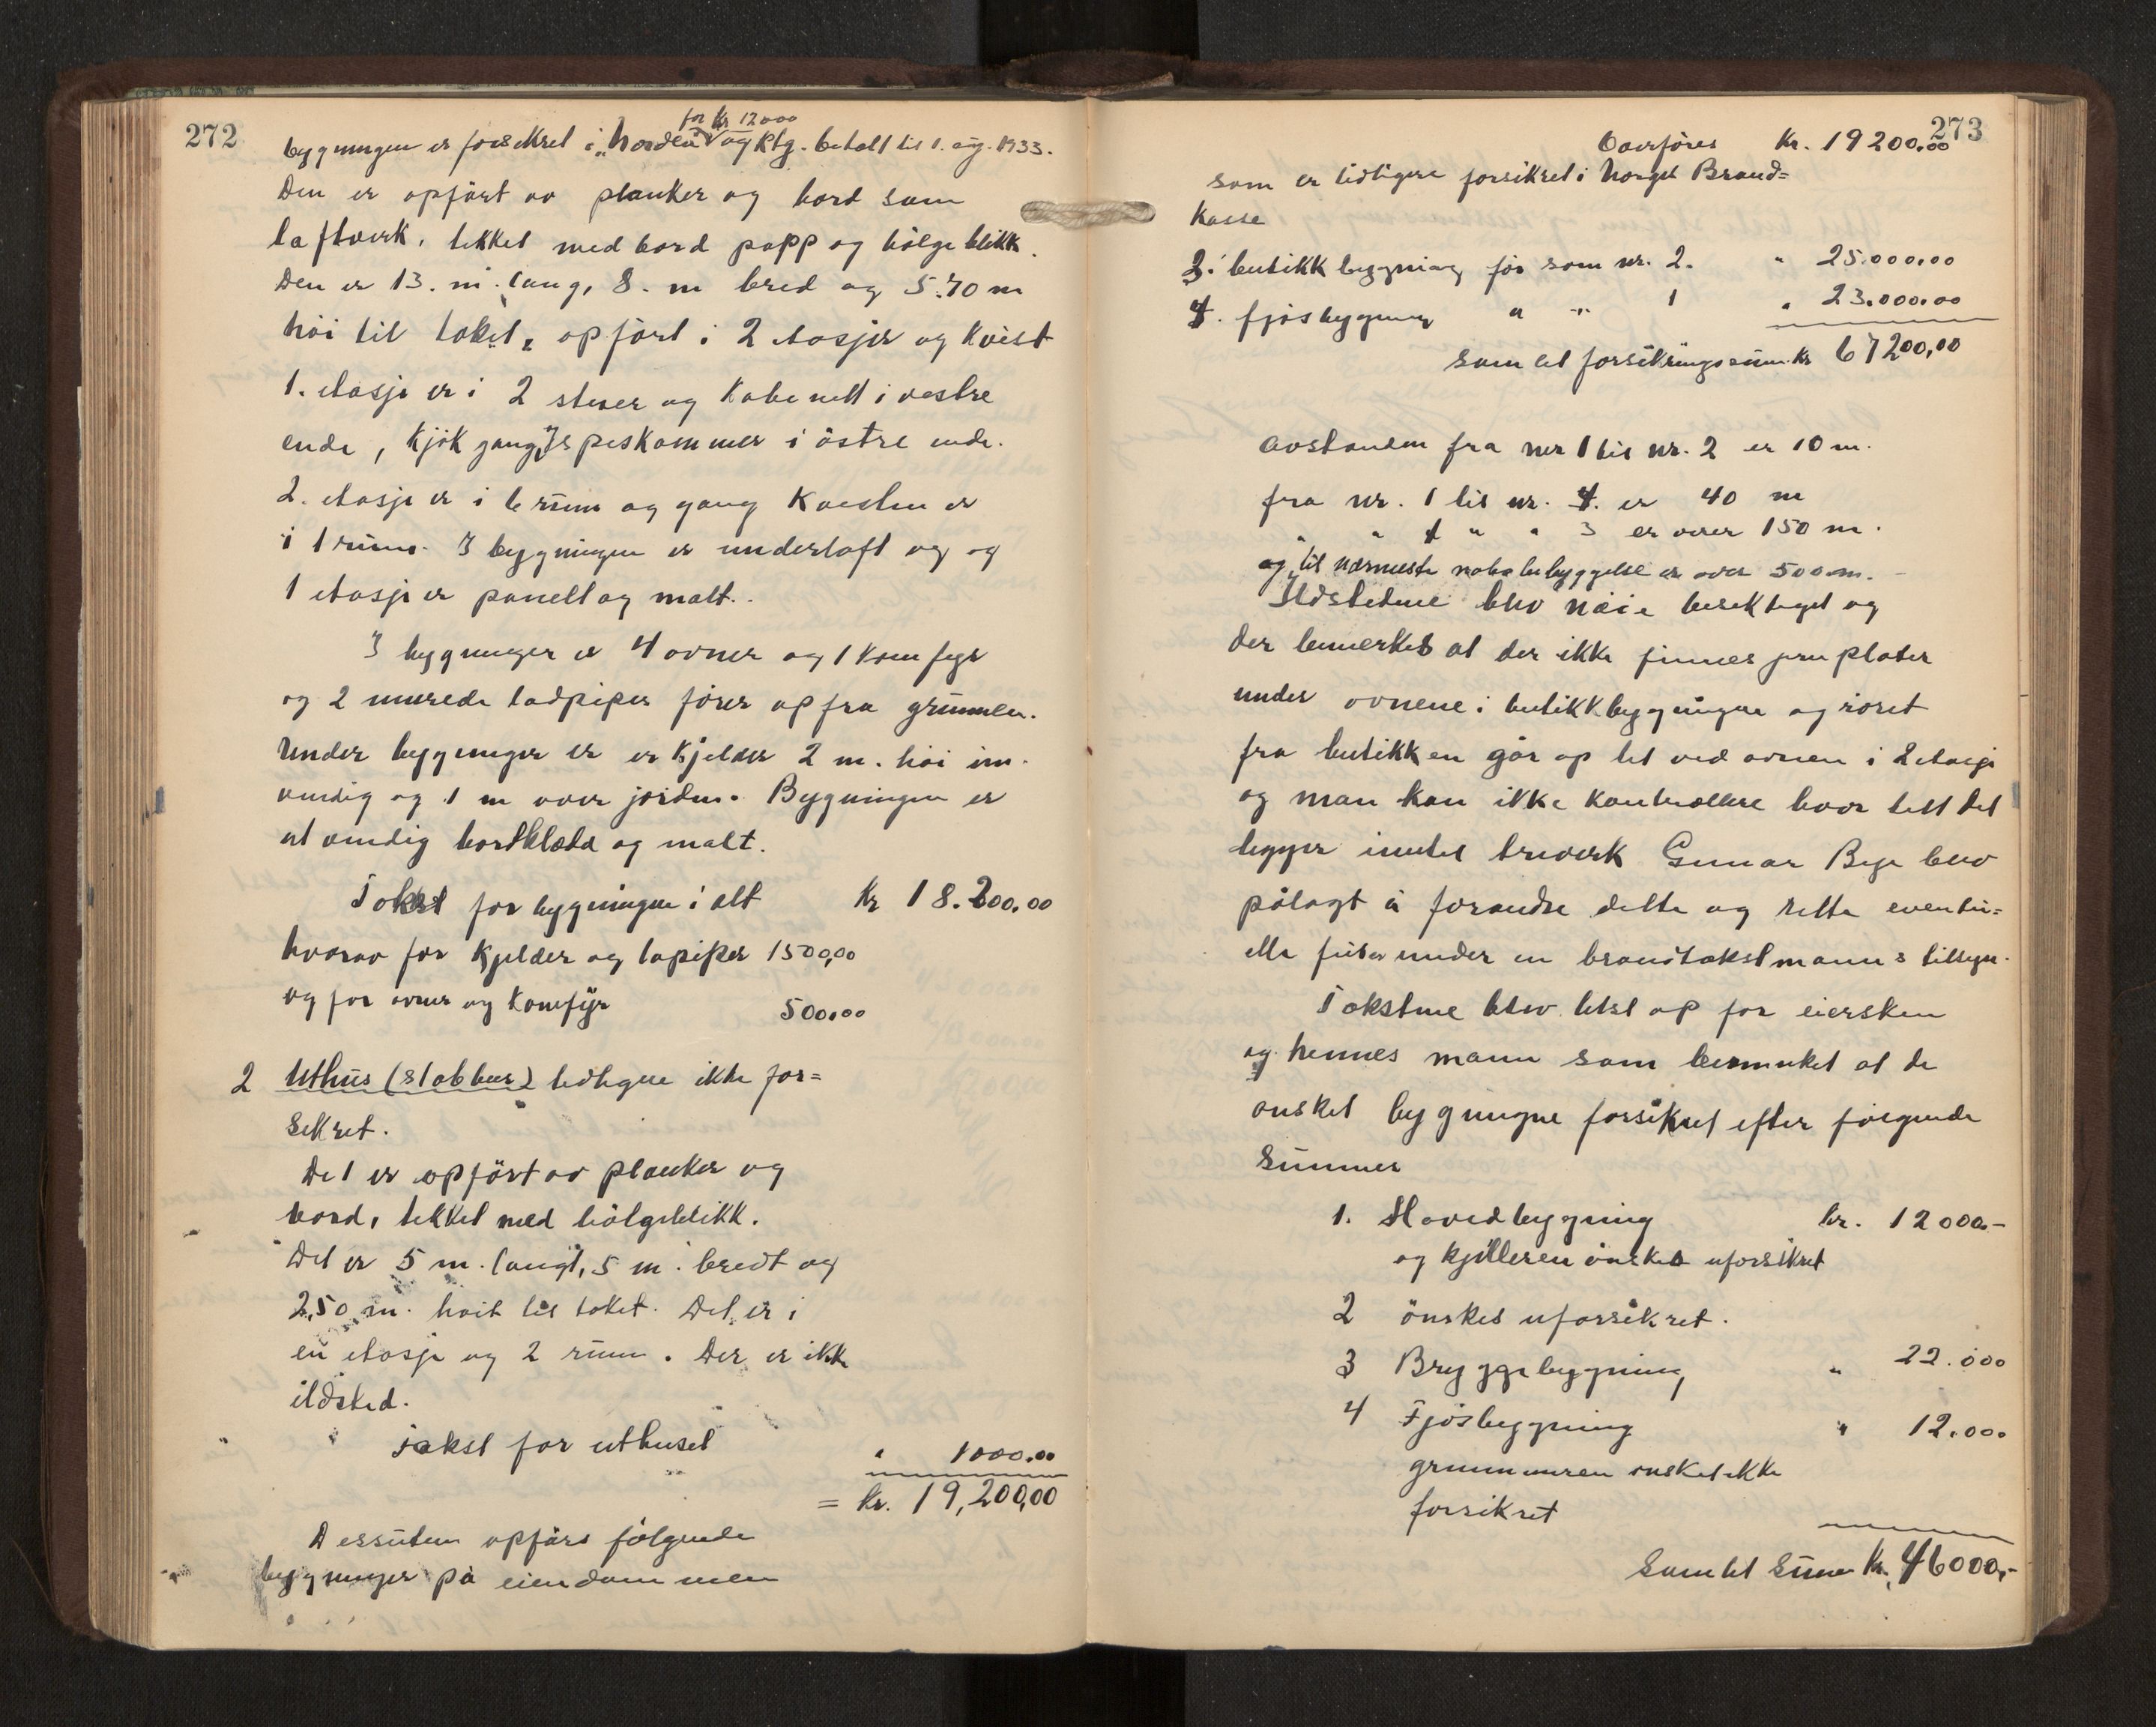 272
for kr 12000
bygningen er forsekret i „Norden" og ktg. betalt til 1. aug. 1933.
Den er opført av planker og bord som
laftverk, tekket med bord papp og bølgeblikk.
Den er 13. m. lang, 8. m bred og 5.70 m
höi til taket, opført i 2 etasjer og kvist
1. etasje er i 2 stuer og kabenett i vestre
ende, kjök gang og speskammer i östre ende.
2. etasje er i 6 rum og gang Kvisten er
i 1 rum. I bygningen er underloft og og
1 etasje er panelt og malt.
I bygninger er 4 ovner og 1 komfyr
og 2 murede ladpiper fører op fra grunnen.
Under bygninger er er kjelder 2 m. höi inn-
vendig og 1 m over jorden. Bygningen er
utvendig bordklædd og malt.
Takst for bygningen i alt kr 18.200.00
hvorav for kjelder og lapiper 1500,00
og for ovner og komfyr 500.00
2 Uthus (stabbur) tidligere ikke for=
sekret.
Det er opført av planker og
bord, tekket med bölgeblikk.
Det er 5 m. langt, 5 m. bredt og
2,50 m. höit til taket. Det er i
en etasje og 2 rum. Der er ikke
ildsted.
Takst for uthuset " 1000.00
= kr. 19,200,00
Dessuten opføres følgende
bygninger på eiendommen
273
Overføres kr. 19200.00
som er tidligere forsikret i Norges Brand=
kasse
3. butikkbygning för som nr. 2. " 25.000.00
4. fjösbygning " " 1 " 23.000.00
Samlet forsikringssum kr 67200,00
Avstanden fra nr 1 til nr. 2 er 10 m.
fra nr. 1 til nr. 4. er 40 m
" " 4 " " 3 er over 150 m.
og til nærmeste nabobebyggelse er over 500 m. -
Ildstedene blev nöie besiktiget og
der bemerkes at der ikke finnes jernplater
under ovnene i butikkbygningen og röret
fra butikken går op tet ved ovnen i 2 etasje
og man kan ikke kontrollere hvor tett det
ligger inntil treverk Gunnar Bye blev
pålagt å forandre dette og rette eventu=
elle feiler under en brandtakstmanns tilsyn.
Takstene blev lest op for eiersken
og hennes mann som bemerket at de
ønsket bygningene forsikret efter følgende
Summer
1. Hovedbygning kr. 12000.-
og kjelleren önskes uforsikret
2 önskes uforsikret.
3 Bryggebygning " 22.000
4 Fjösbygning " 12.000
grunnmuren önsket ikke
forsikret
Samlet Sum kr. 46000,-